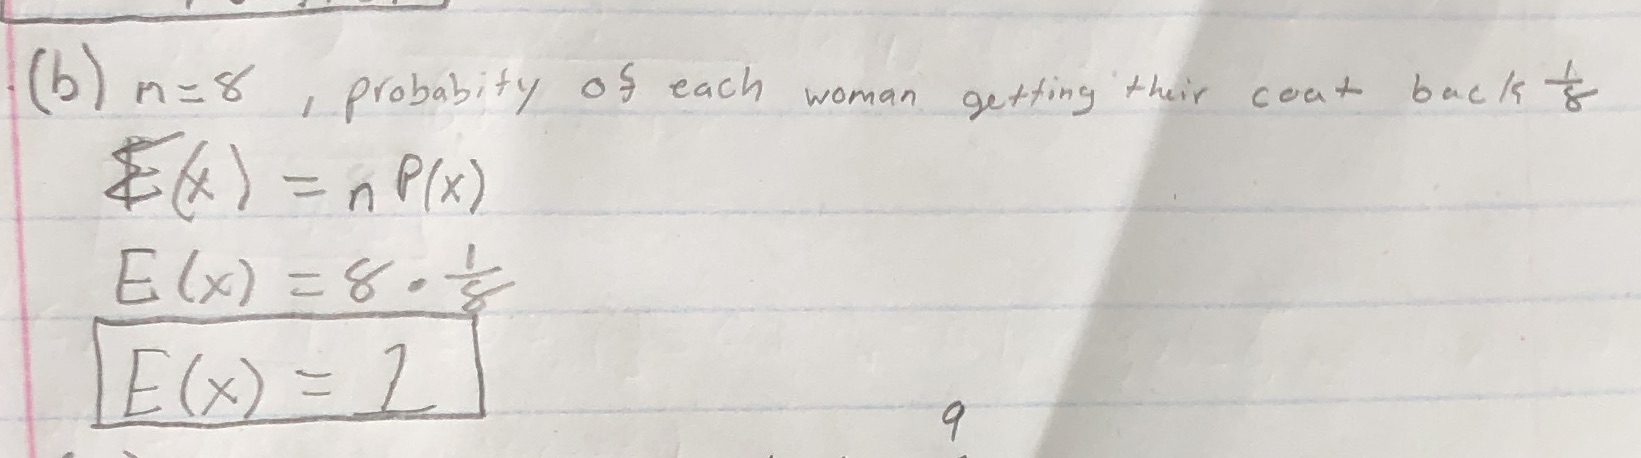 (b) n=8, probabity of each woman getting their coat back 1/8
E(x) = n P(x)
E(x) = 8 · 1/8
E(x) = 1
9